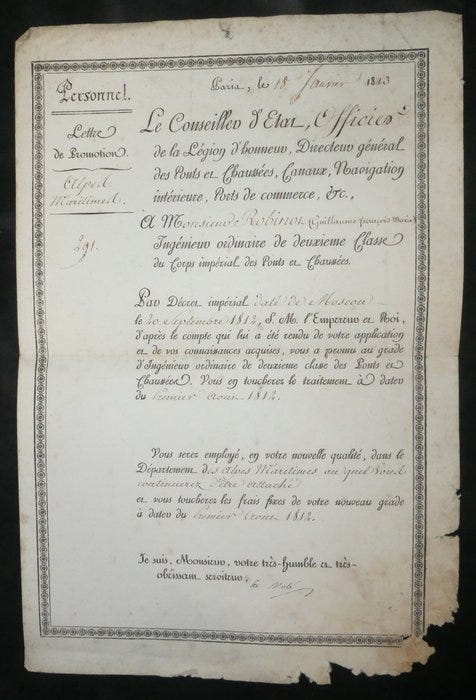 Paris, le 18 Janvier 1813
Personnel.
Lettre
de Promotion.
Alpes
Maritimes
291.
Le Conseiller d'Etat, Officier
de la Légion d'honneur, Directeur général
des Ponts et Chaussées, Canaux, Navigation
intérieure, Ports de commerce, &c.,
A Monsieur Robinot (Guillaume François Marie)
Ingénieur ordinaire de deuxième Classe
du Corps impérial des Ponts et Chaussées.
Par Décret impérial daté de Moscou
le 20 Septembre 1812, S. M. l'Empereur et Roi,
d'après le compte qui lui a été rendu de votre application
et de vos connaissances acquises, vous a promu au grade
d'Ingénieur ordinaire de deuxième classe des Ponts et
Chaussées. Vous en toucherez le traitement à dater
du Premier Aout 1812.
Vous serez employé, en votre nouvelle qualité, dans le
Département des Alpes Maritimes au quel Vous
continuerez d'être attaché
et vous toucherez les frais fixes de votre nouveau grade
à dater du Premier Aout 1812.
Je suis, Monsieur, votre très-humble et très-
obéissant serviteur.